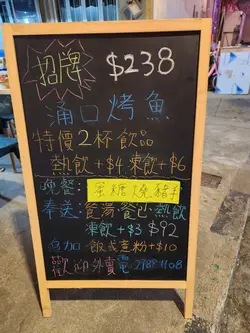 招牌 $238
涌口烤魚
特價2杯飲品
熱飲+$4 凍飲+$6
晚餐: 蜜糖燒豬手
奉送: 餐湯 餐包 熱飲
凍飲+$3 $92
另加 飯或意粉+$10
歡迎外賣電 2982 1108